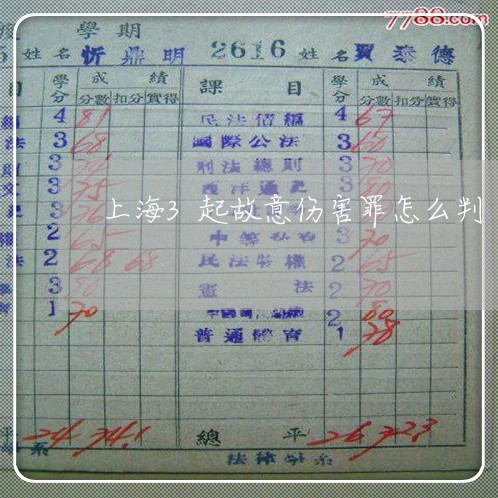 7788.com
學期
姓名 忻鼎明 2616 姓名 賈泰德
目 學分 成績 課目 學分 成績
分數 扣分 實得 分數 扣分 實得
4 81 民法債編 4 67
法 3 68 國際公法 3 60
3 刑法總則 3 70
3 75 西洋通史 3 80
上海3 起故意伤害罪怎么判
2 65 3 70
法 2 68 68 民法物權 2 65
3 80 憲法 2 70
1 70 2 80
普通體育 1 78
平 24 74.1 總平 26 72.3
系 法律學系